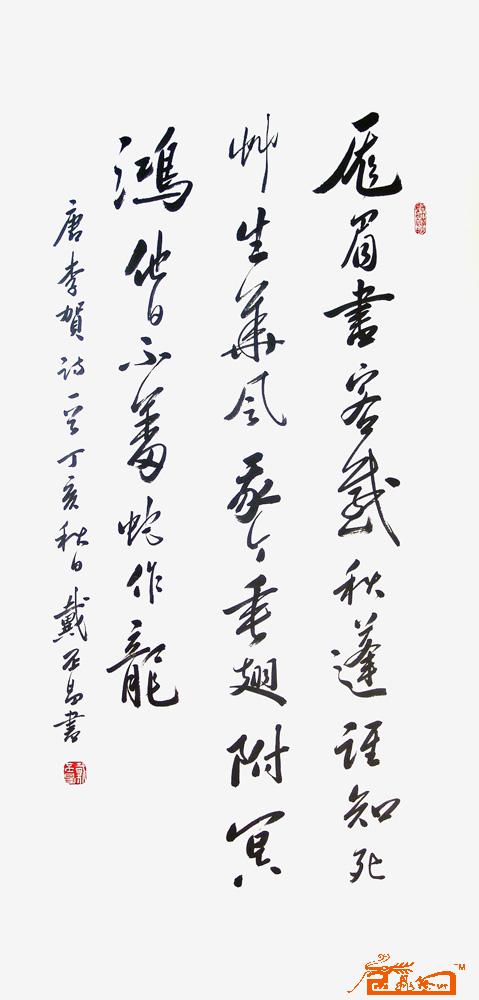 厖眉書客感秋蓬誰知死
艸生華風我今垂翅附冥
鴻他日不羞蛇作龍
唐李賀詩一首丁亥秋日戴書